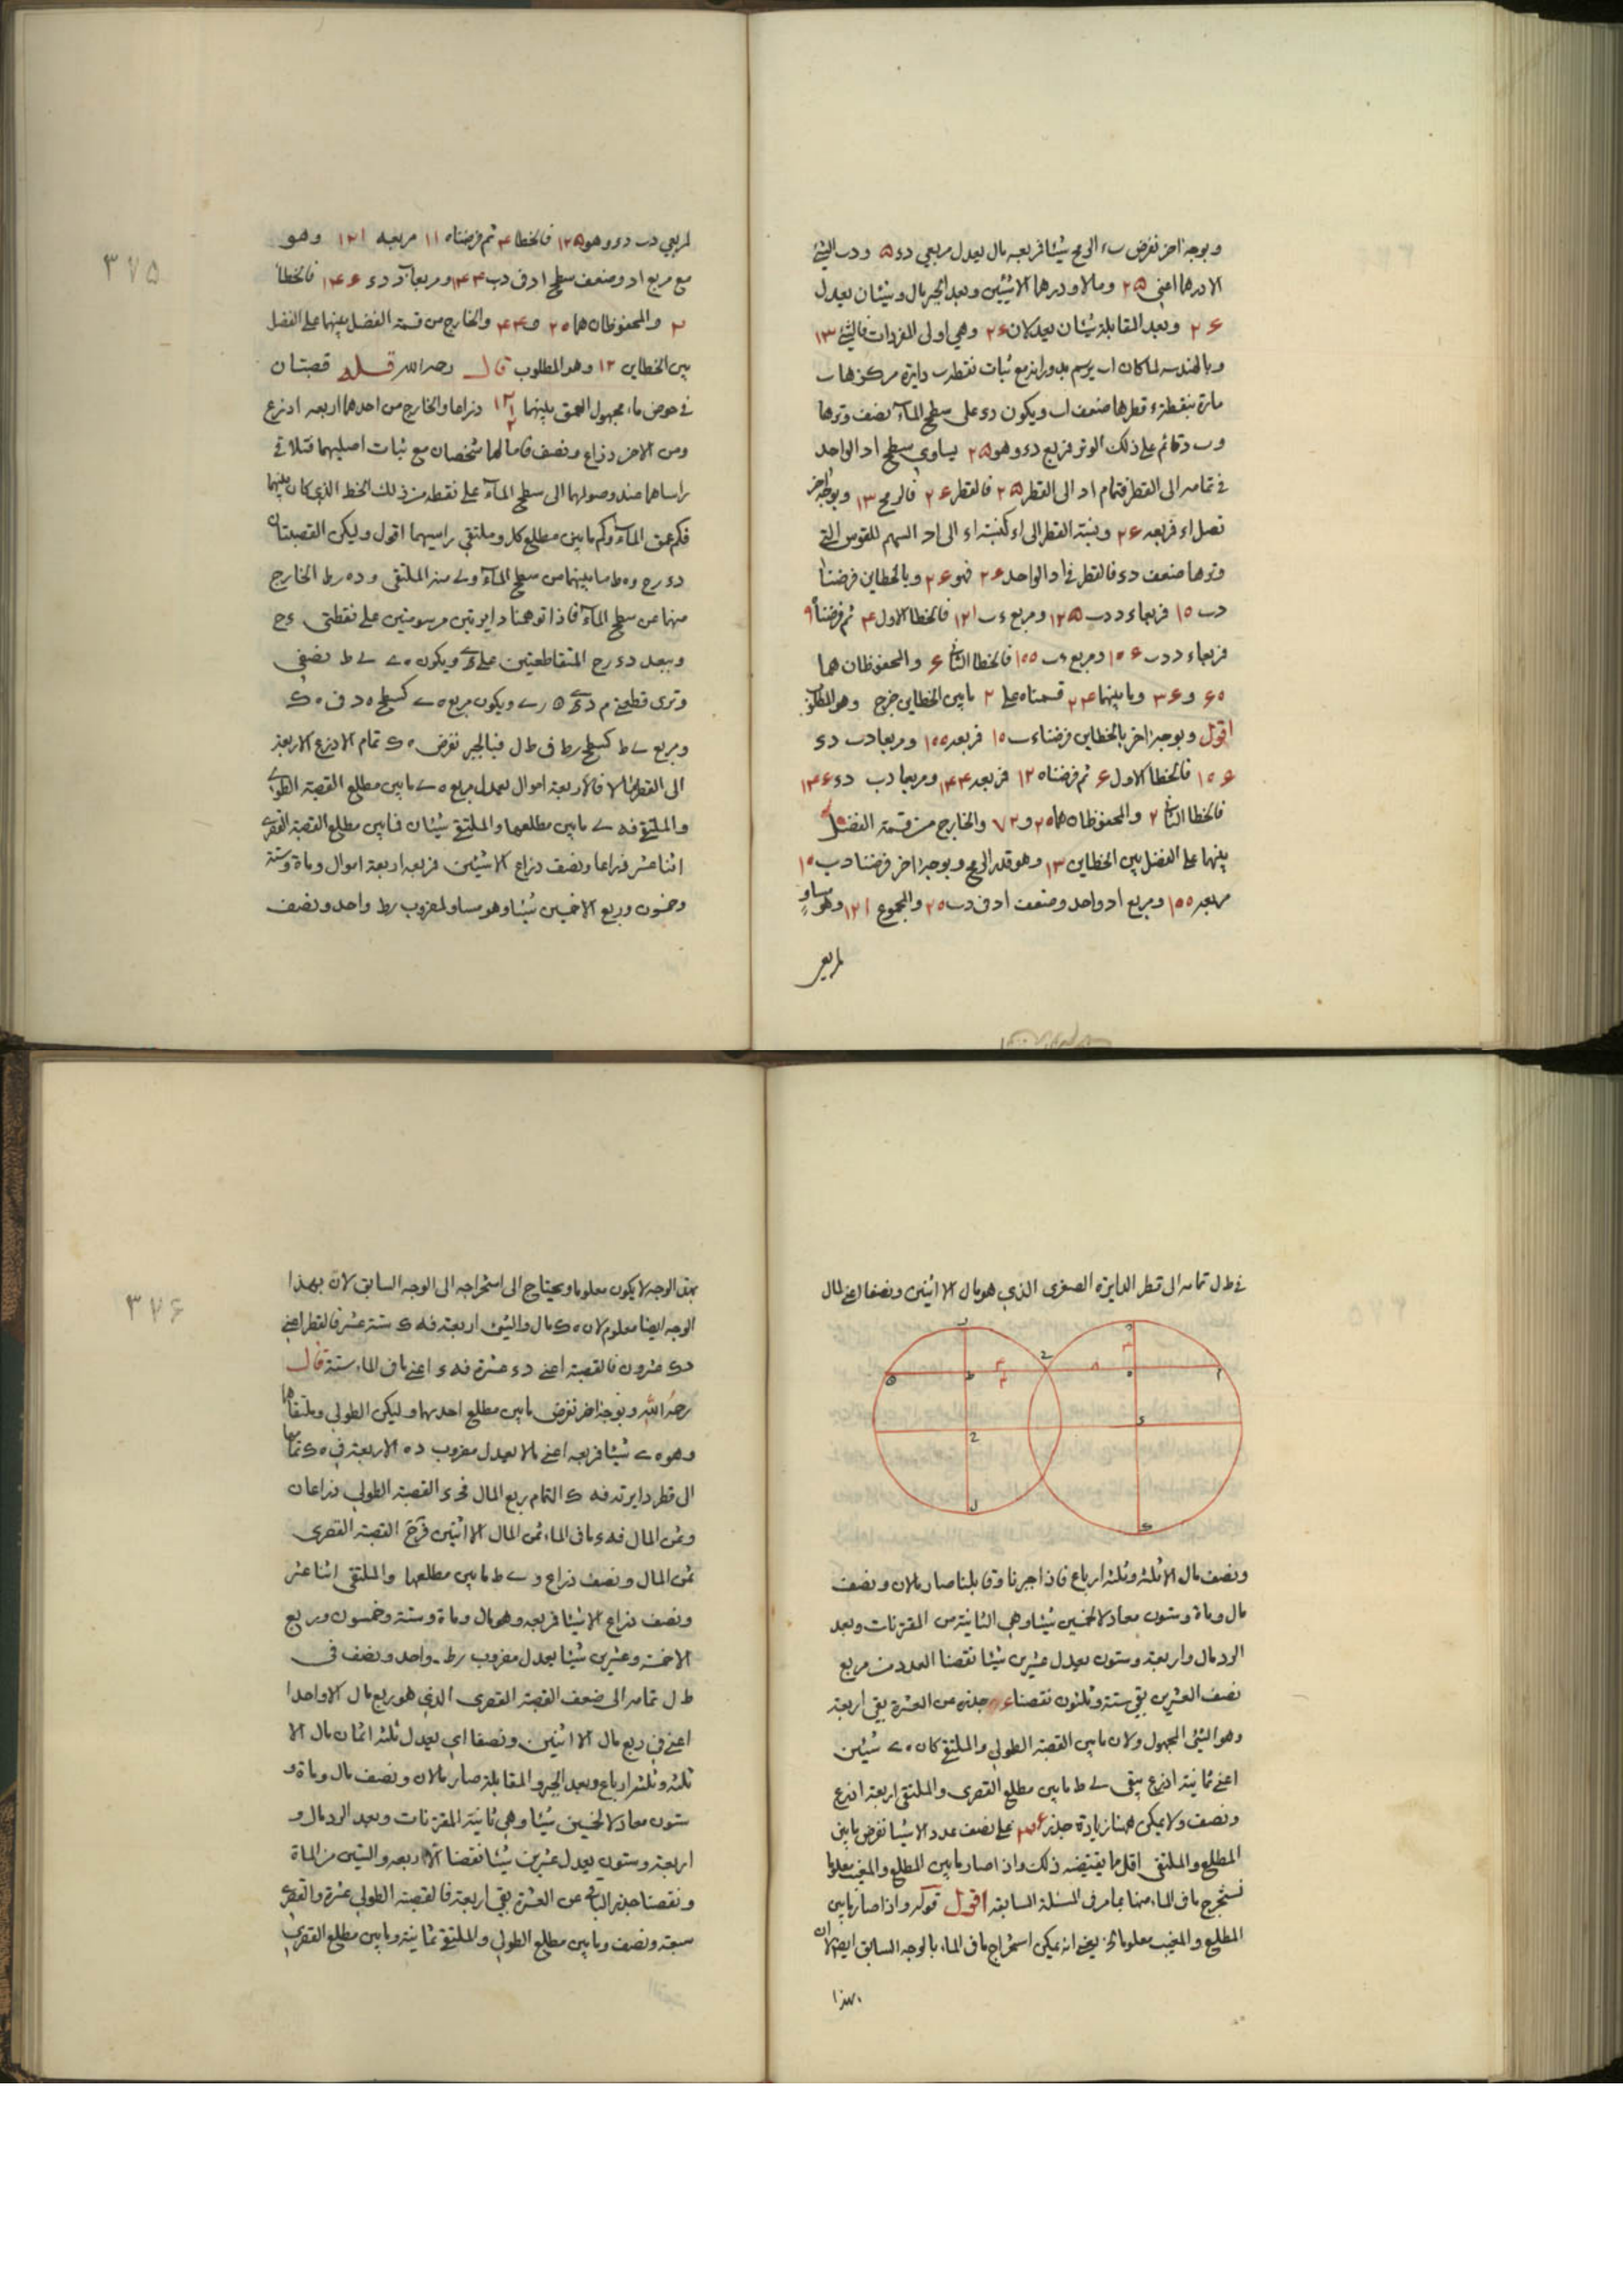 وبوجه اخر نفرض ب ء الرمح شيئا فربعه مال يعدل مربعي د ء ٢٥ و د ب الشئ
الا درهما اعنى ٢٥ ومالا ودرهما الا شيئين وبعد الجبر مال وشيئان يعدل
٢٦ وبعد المقابلة شيئان يعدلان ٢٦ وهي اولى المفردات فالشئ ١٣
وبالهندسه لما كان ا ب يرسم بدورانه مع ثبات نقطة ب دايرة مركزها ب
مارة بنقطة ء قطرها ضعف ا ب ويكون د ء على سطح الماء نصف وترها
و ب د قائم على ذلك الوتر فربع د ء وهو ٢٥ يساوي سطح ا د الواحد
في تمامه الى القطر فتمام ا د الى القطر ٢٥ فالقطر ٢٦ فالرمح ١٣ وبوجه اخر
نصل ا ء فربعه ٢٦ ونسبة القطر الى ا ء كنسبة ا ء الى ا د السهم للقوس التي
وترها ضعف د ء فالقطر في ا د الواحد ٢٦ فهو ٢٦ وبالخطاين فرضنا
د ب ١٠ فربعا ء د د ب ١٢٥ ومربع ء ب ١٢١ فالخطا الاول ٤ ثم فرضنا ٩
فربعا ء د د ب ١٠٦ ومربع ء ب ١٠٠ فالخطا الثاني ٦ والمحفوظان هما
٦٠ و ٣٦ وما بينهما ٢٤ قسمناه على ٢ ما بين الخطاين خرج وهو المطلوب
اقول وبوجه اخر بالخطاين فرضنا ء ب ١٠ فربعه ١٠٠ ومربعا د ب د ء
١٠٦ فالخطا الاول ٦ ثم فرضناه ١٢ فربعه ١٤٤ ومربعا د ب د ء ١٤٦
فالخطا الثاني ٢ والمحفوظان هما ٢٠ و ٧٢ والخارج من قسمة الفضل
بينها على الفضل بين الخطاين ١٣ وهو قدر الرمح وبوجه اخر فرضنا د ب ١٠
مربعه ١٠٠ ومربع ا د واحد وضعف ا د في د ب ٢٠ والمجموع ١٢١ وهو مساو
لمربعي
٣٧٥
لمربعي د ب د ء وهو ١٢٥ فالخطا ٤ ثم فرضناه ١١ مربعه ١٢١ وهو
مع مربع ا د وضعف سطح ا د في د ب ١٤٤ ومربعا د ء ١٤٦ فالخطا
٢ والمحفوظان هما ٢٠ و ٤٤ والخارج من قسمة الفضل بينهما على الفضل
بين الخطاين ١٢ وهو المطلوب قال رحمه الله قصبتان
في حوض ماء مجهول العمق بينهما ١٢ ١/٢ ذراعا والخارج من احدهما اربعه اذرع
ومن الاخر ذراع ونصف فامالهما شخصان مع ثبات اصليهما فتلاقى
راساهما عند وصولهما الى سطح الماء على نقطة من ذلك الخط الذي كان بينهما
فكم عمق الماء وكم ما بين مطلع كل وملتقى راسيهما اقول وليكن القصبتان
د ء ر ح و ه ط ما بينهما من سطح الماء و ى منه الملتقى و د ه ر ط الخارج
منها عن سطح الماء فاذا توهمنا دايرتين مرسومتين على نقطتي ء ح
وببعد د ء ر ح المتقاطعتين على ى ويكون ه ى ى ط نصفي
وترى قطعتي م د ى ن ر ى ويكون مربع ه ى كسطح ه د في ه ك
ومربع ى ط كسطح ر ط في ط ل فبالجبر نفرض ه ك تمام الاذرع الاربعة
الى القطر مالا فالاربعة اموال يعدل مربع ه ى ما بين مطلع القصبة الطولى
والملتقى فه ى ما بين مطلعها والملتقى شيئان فما بين مطلع القصبة القصرى
اثنا عشر ذراعا ونصف ذراع الا شيئين فربعه اربعة اموال وماة وستة
وخمسون وربع الا خمسين شيئا وهو مساو لمضروب ر ط واحد ونصف
في ط ل تمامه الى قطر الدايرة الصغرى الذي هو مال الا اثنين ونصفا اعنى المال
ونصف مال الا ثلثة وثلثة ارباع فاذا جبرنا وقابلنا صار مالان ونصف
مال وماة وستون معادلا لخمسين شيئا وهي الثانية من المقترنات وبعد
الرد مال واربعة وستون يعدل عشرين شيئا نقصنا العدد من مربع
نصف العشرين بقي ستة وثلثون نقصنا جذره من العشرة بقي اربعة
وهو الشئ المجهول ولان ما بين القصبة الطولى والملتقى كان ه ى شيئين
اعنى ثمانية اذرع يبقى ى ط ما بين مطلع القصرى والملتقى اربعة اذرع
ونصف ولا يمكن ههنا زيادة جذر ٣٦ على نصف عدد الاشيا نفرض ما بين
المطلع والملتقى اقل ما يقتضيه ذلك واذا صار ما بين المطلع والمغيب معلوما
نستخرج ما في الماء منها بما مر في المسئلة السابقة اقول قوله واذا صار ما بين
المطلع والمغيب معلوما الخ يعني انه يمكن استخراج ما في الماء بالوجه السابق ايضا لان
بهذا
٣٧٦
بهذا الوجه لا يكون معلوما ويحتاج الى استخراجه الى الوجه السابق لان بهذا
الوجه ايضا معلوم لان ه ك مال والشئ اربعة فه ك ستة عشر فالقطر اعنى
د ك عشرون فالقصبة اعنى د ء عشرة فه ء اعنى ما في الماء ستة قال
رحمه الله وبوجه اخر نفرض ما بين مطلع احديهما وليكن الطولى وملتقاها
وهو ه ى شيئا فربعه اعنى مالا يعدل مضروب د ه الاربعة في ه ك تمامها
الى قطر دايرته فه ك التمام ربع المال فد ء القصبة الطولى ذراعان
وثمن المال فه ء ما في الماء ثمن المال الا اثنين فر ح القصبة القصرى
ثمن المال ونصف ذراع و ى ط ما بين مطلعها والملتقى اثنا عشر
ونصف ذراع الا شيئا فربعه وهو مال وماة وستة وخمسون وربع
الا خمسة وعشرين شيئا يعدل مضروب ر ط واحد ونصف في
ط ل تمامه الى ضعف القصبة القصرى الذي هو ربع مال الا واحدا
اعنى في ربع مال الا اثنين ونصفا اي يعدل ثلثة اثمان مال الا
ثلثة وثلثة ارباع وبعد الجبر والمقابلة صار مالان ونصف مال وماة و
ستون معادلا لخمسين شيئا وهي ثانية المقترنات وبعد الرد مال و
اربعة وستون يعدل عشرين شيئا نقصنا الاربعه والستين من الماة
ونقصنا جذر الباقي من العشرة بقي اربعة فالقصبة الطولى عشرة والقصرى
سبعة ونصف وما بين مطلع الطولى والملتقى ثمانية وما بين مطلع القصرى